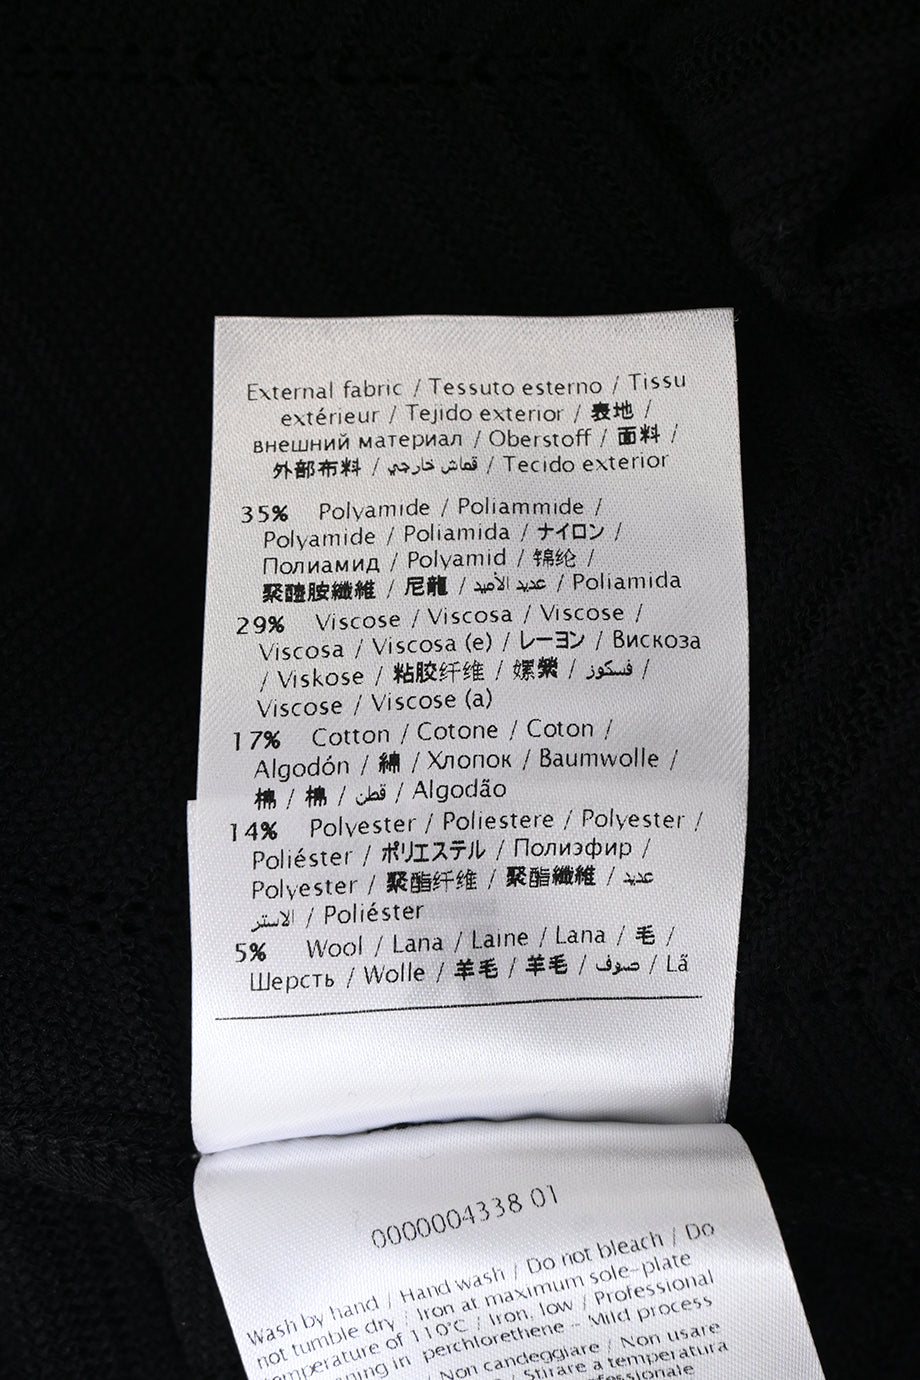 External fabric / Tessuto esterno / Tissu
extérieur / Tejido exterior / 表地 /
внешний материал / Oberstoff / 面料 /
外部布料 / قماش خارجي / Tecido exterior
35% Polyamide / Poliammide /
Polyamide / Poliamida / ナイロン /
Полиамид / Polyamid / 锦纶 /
聚醯胺纖維 / 尼龍 / عديد الأميد / Poliamida
29% Viscose / Viscosa / Viscose /
Viscosa / Viscosa (e) / レーヨン / Вискоза
/ Viskose / 粘胶纤维 / 嫘縈 / فسكوز /
Viscose / Viscose (a)
17% Cotton / Cotone / Coton /
Algodón / 綿 / Хлопок / Baumwolle /
棉 / 棉 / قطن / Algodão
14% Polyester / Poliestere / Polyester /
Poliéster / ポリエステル / Полиэфир /
Polyester / 聚酯纤维 / 聚酯纖維 / عديد
الاستر / Poliéster
5% Wool / Lana / Laine / Lana / 毛 /
Шерсть / Wolle / 羊毛 / 羊毛 / صوف / Lã
0000004338 01
Wash by hand / Hand wash / Do not bleach / Do
not tumble dry / Iron at maximum sole-plate
temperature of 110°C / Iron, low / Professional
in perchlorethene - Mild process
/ Non candeggiare / Non usare
/ Stirare a temperatura